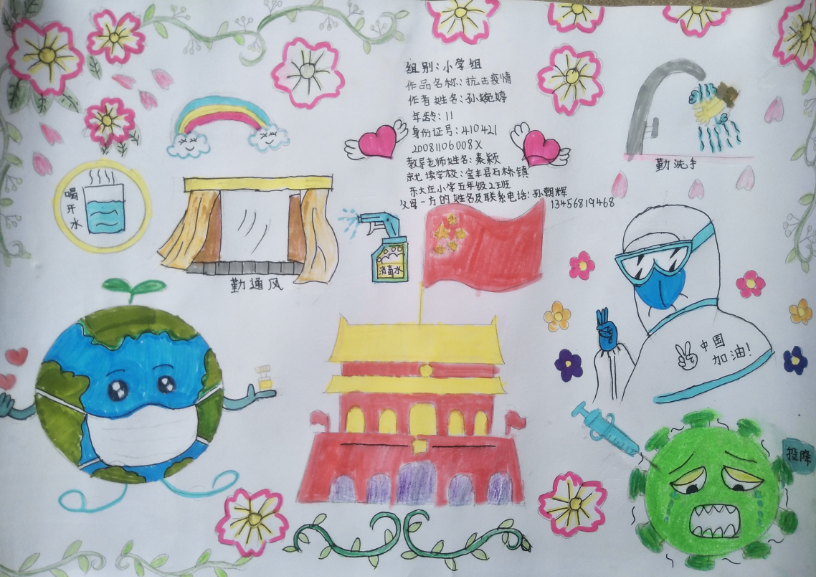 组别:小学组
作品名称:抗击疫情
作者姓名:孙婉婷
年龄:11
身份证号:410421
20081106008X
教导老师姓名:秦颖
就读学校:宝丰县石桥镇
东大庄小学五年级23班
父母一方的姓名及联系电话:孙朝辉
13456819468
勤洗手
喝开水
勤通风
消毒水
中国
加油!
投降